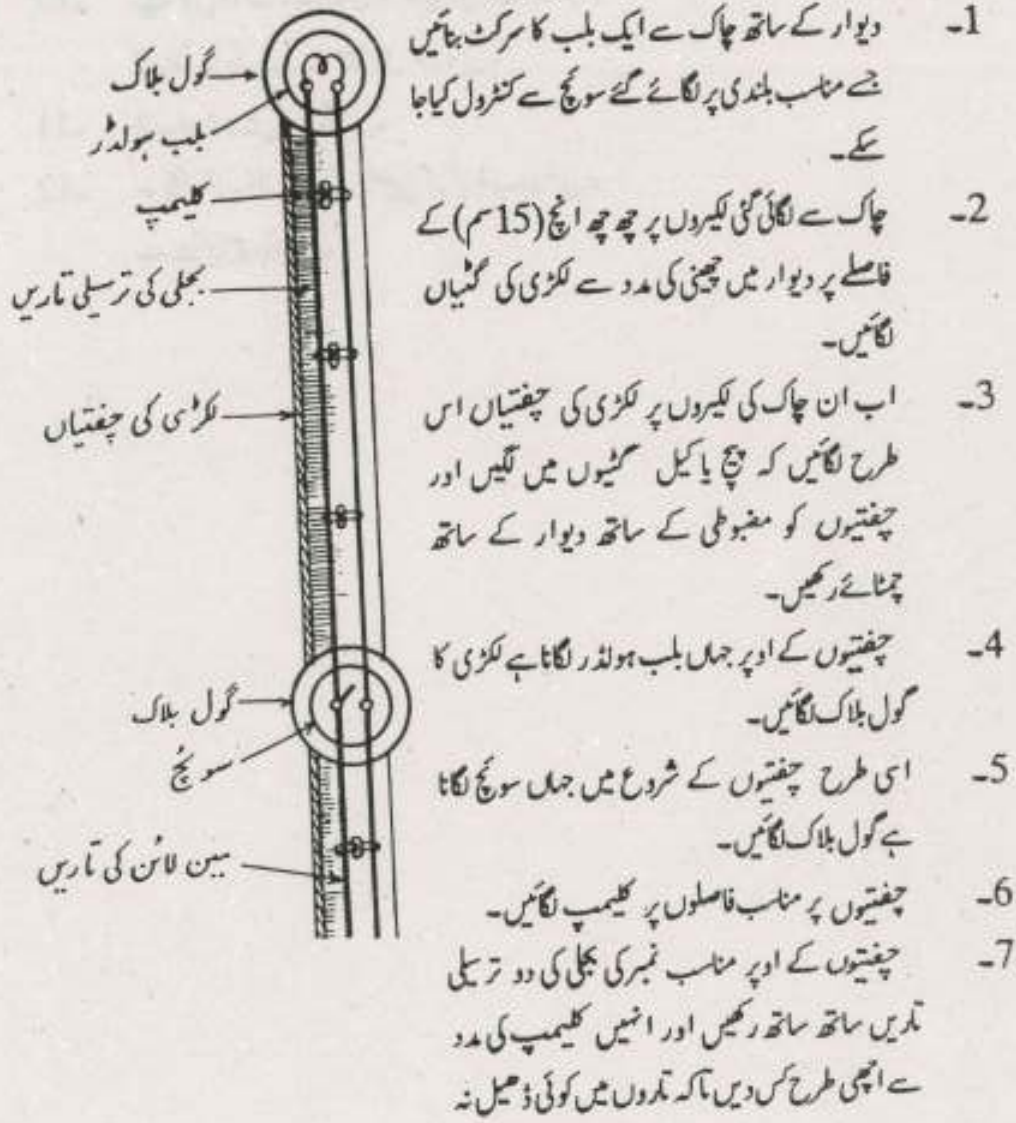 1۔ دیوار کے ساتھ چاک سے ایک بلب کا سرکٹ بنائیں
جسے مناسب بلندی پر لگائے گئے سوئچ سے کنٹرول کیا جا
سکے۔
2۔ چاک سے لگائی گئی لکیروں پر چھ چھ انچ (15 سم) کے
فاصلے پر دیوار میں چھینی کی مدد سے لکڑی کی گٹیاں
لگائیں۔
3۔ اب ان چاک کی لکیروں پر لکڑی کی چفتیاں اس
طرح لگائیں کہ پیچ یا کیل گٹیوں میں لگیں اور
چفتیوں کو مضبوطی کے ساتھ دیوار کے ساتھ
چمٹائے رکھیں۔
4۔ چفتیوں کے اوپر جہاں بلب ہولڈر لگانا ہے لکڑی کا
گول بلاک لگائیں۔
5۔ اسی طرح چفتیوں کے شروع میں جہاں سوئچ لگانا
ہے گول بلاک لگائیں۔
6۔ چفتیوں پر مناسب فاصلوں پر کلیمپ لگائیں۔
7۔ چفتیوں کے اوپر مناسب نمبر کی بجلی کی دو ترسیلی
تاریں ساتھ ساتھ رکھیں اور انہیں کلیمپ کی مدد
سے اچھی طرح کس دیں تاکہ تاروں میں کوئی ڈھیل نہ
گول بلاک
بلب ہولڈر
کلیمپ
بجلی کی ترسیلی تاریں
لکڑی کی چفتیاں
گول بلاک
سوئچ
مین لائن کی تاریں